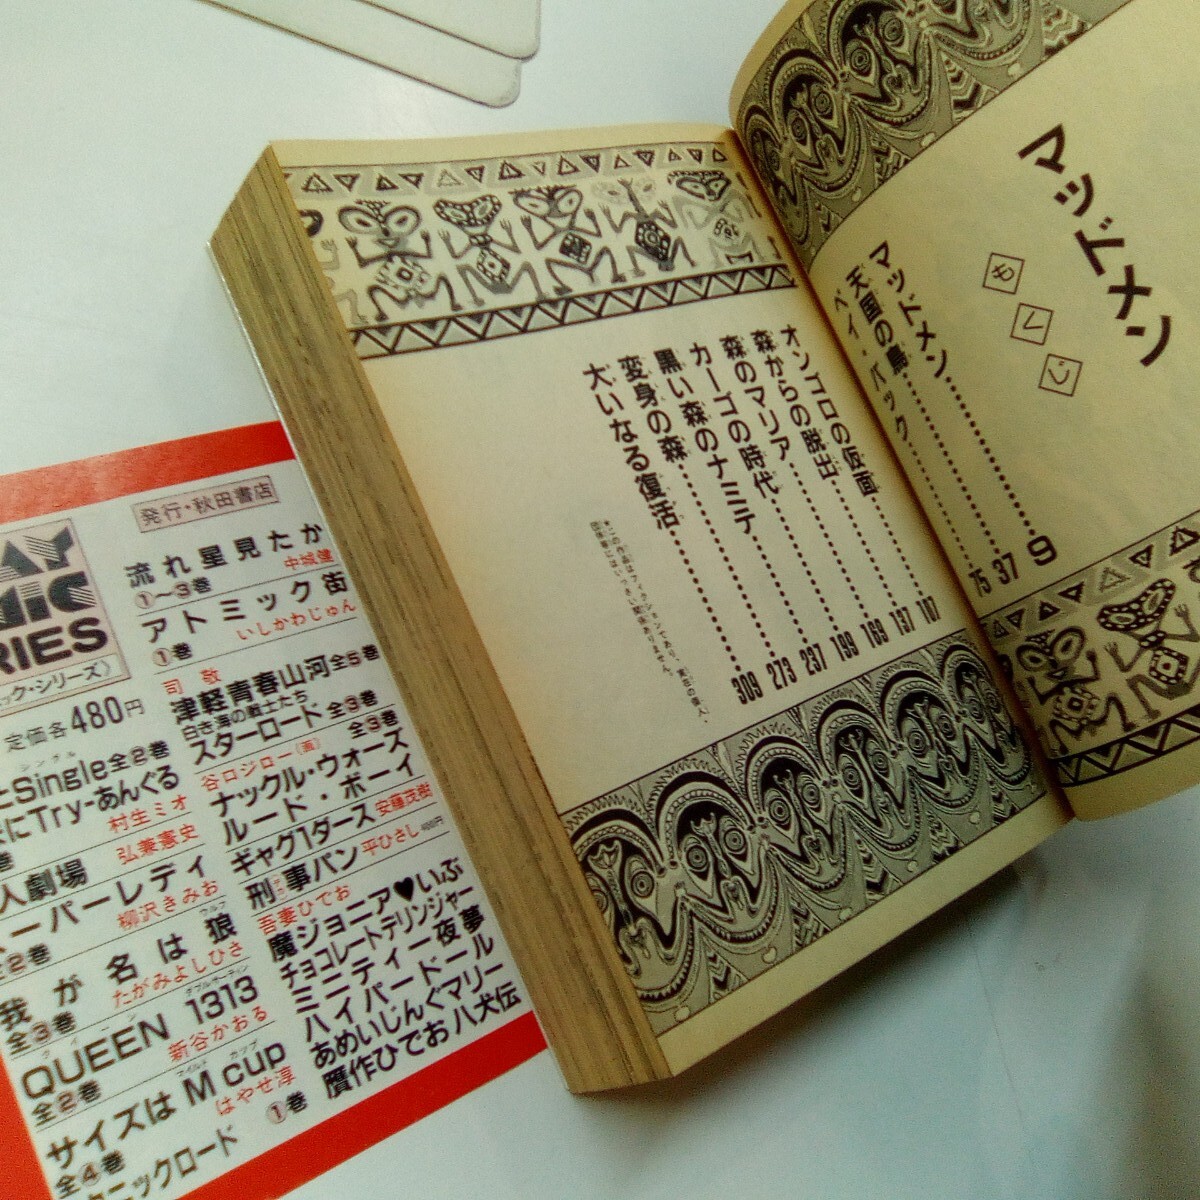 マッドメン
もくじ
マッドメン 9
天国の鳥 37
ペイ・バック 75
オンゴロの仮面 107
森からの脱出 137
森のマリア 163
カーゴの時代 199
黒い森のナミテ 237
変身の森 273
大いなる復活 309
*この作品はフィクションであり、実在の個人、
団体等にはいっさい関係ありません。
発行・秋田書店
流れ星見たか
①〜③巻 中城健
アトミック街
①巻 いしかわじゅん
司 敬
津軽青春山河 全⑤巻
白き海の戦士たち
スターロード 全③巻
谷口ジロー(画) 全③巻
ナックル・ウォーズ
ルード・ボーイ
ギャグ1ダース 安藤茂樹
刑事パン 平ひさし 400円
吾妻ひでお
魔ジョニア♥いぶ
チョコレートデリンジャー
ミニティー夜夢
ハイパードール
あめいじんぐマリー
贋作ひでお八犬伝
RIES
ック・シリーズ〉
定価各480円
シングル
Single 全②巻
にTry-あんぐる
村生ミオ
弘兼憲史
人劇場
ーパーレディ
全②巻 柳沢きみお
ウルフ
我が名は狼
全③巻 たがみよしひさ
クイーン ダブルサーティン
QUEEN 1313
全②巻 新谷かおる
マイルド カップ
サイズは M cup
全④巻 はやせ淳
ニックロード ①巻